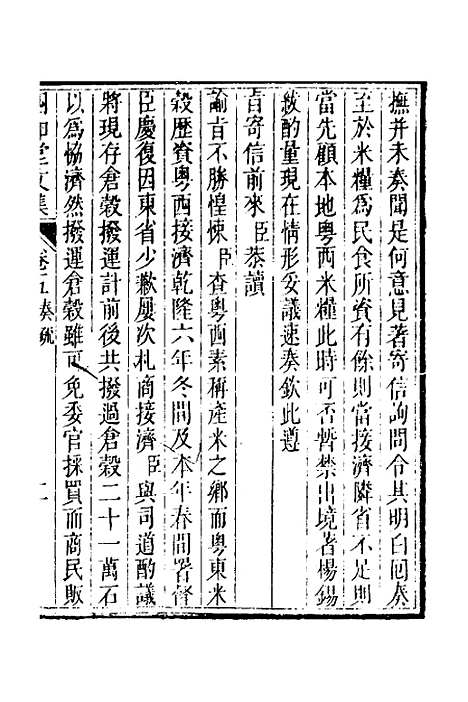 撫并未奏聞是何意見著寄信詢問令其明白囘奏
至於米糧爲民食所資有餘則當接濟隣省不足則
當先顧本地粵西米糧此時可否暫禁出境著楊錫
紱酌量現在情形妥議速奏欽此遵
旨寄信前來臣恭讀
諭旨不勝惶悚臣查粵西素稱產米之鄉而粵東米
穀歷資粵西接濟乾隆六年冬間及本年春間署督
臣慶復因東省少歉屢次札商接濟臣與司道酌議
將現存倉穀撥運計前後共撥過倉穀二十一萬石
以爲協濟然撥運倉穀雖可免委官採買而商民販
四知堂文集 卷五奏疏 二